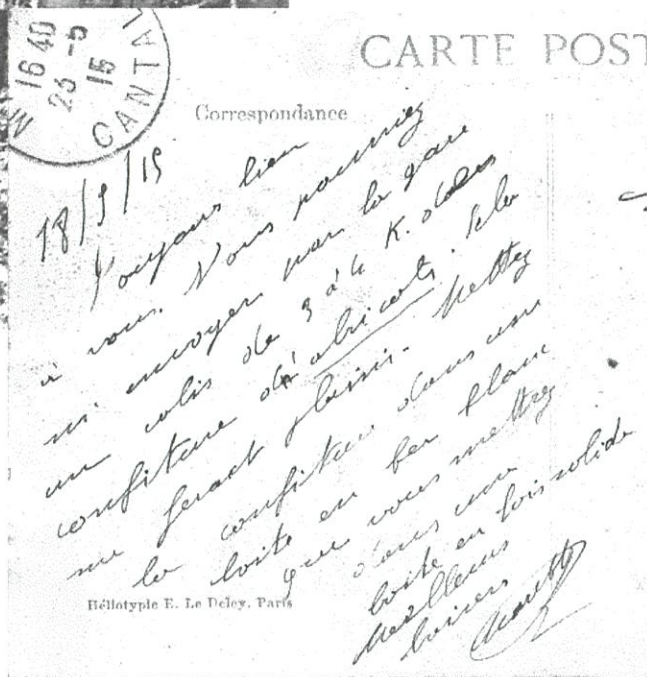 16 40
23 - 5
15
CANTAL
CARTE POST
Correspondance
18/5/15
Toujours bien
à vous. Vous pourriez
m'envoyer par la gare
un colis de 3 à 4 K. de
confiture d'abricots. Cela
me ferait plaisir. Mettez
la confiture dans une
boite en fer blanc
que vous mettrez
dans une
boite en bois solide
Meilleurs
baisers
Héliotypie E. Le Deley, Paris